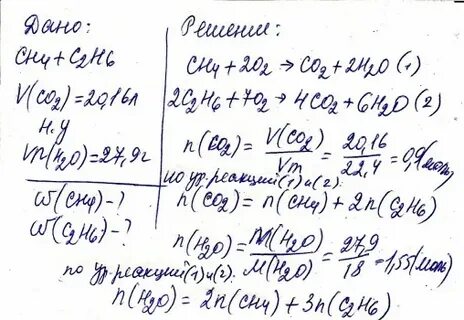 Дано:
CH4+C2H6
V(CO2)=20,16л
н.у
m(H2O)=27,9г
ω(CH4)-?
ω(C2H6)-?
Решение:
CH4+2O2→CO2+2H2O(1)
2C2H6+7O2→4CO2+6H2O(2)
n(CO2)=V(CO2)/Vm=20,16/22,4=0,9(моль)
по ур. реакций(1)и(2):
n(CO2)=n(CH4)+2n(C2H6)
n(H2O)=m(H2O)/M(H2O)=27,9/18=1,55(моль)
по ур. реакций(1)и(2):
n(H2O)=2n(CH4)+3n(C2H6)